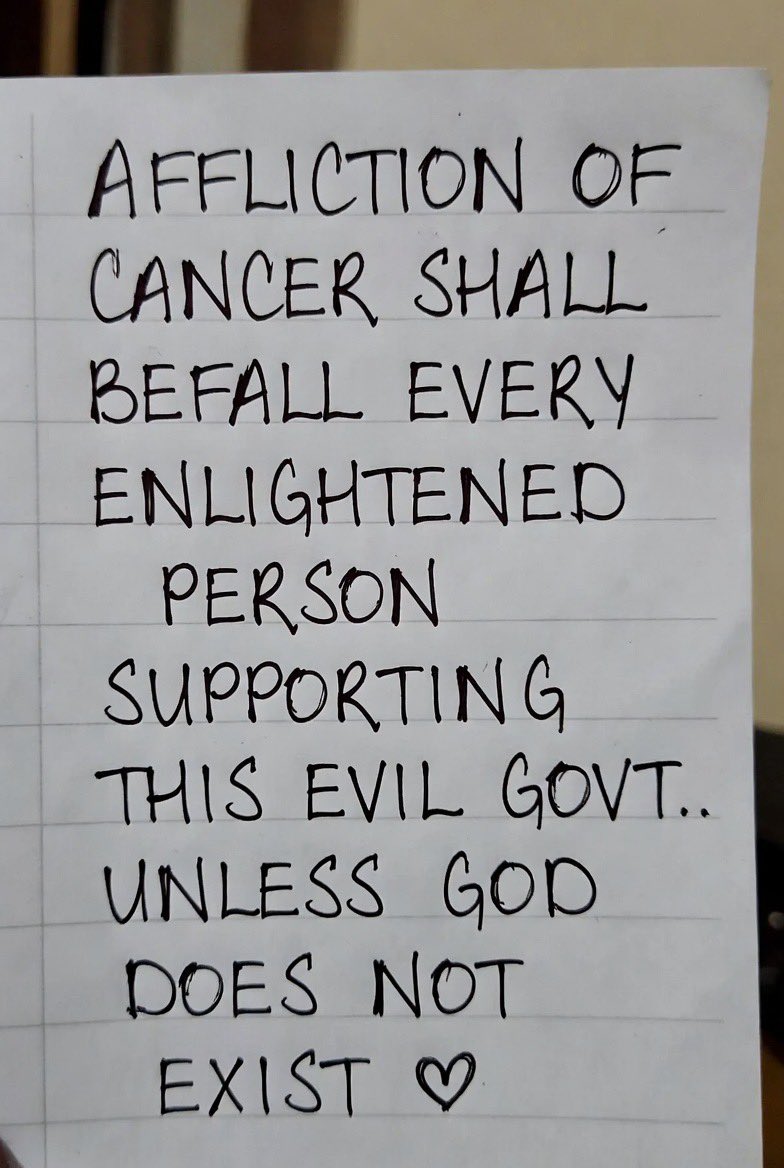 AFFLICTION OF
CANCER SHALL
BEFALL EVERY
ENLIGHTENED
PERSON
SUPPORTING
THIS EVIL GOVT..
UNLESS GOD
DOES NOT
EXIST ♡